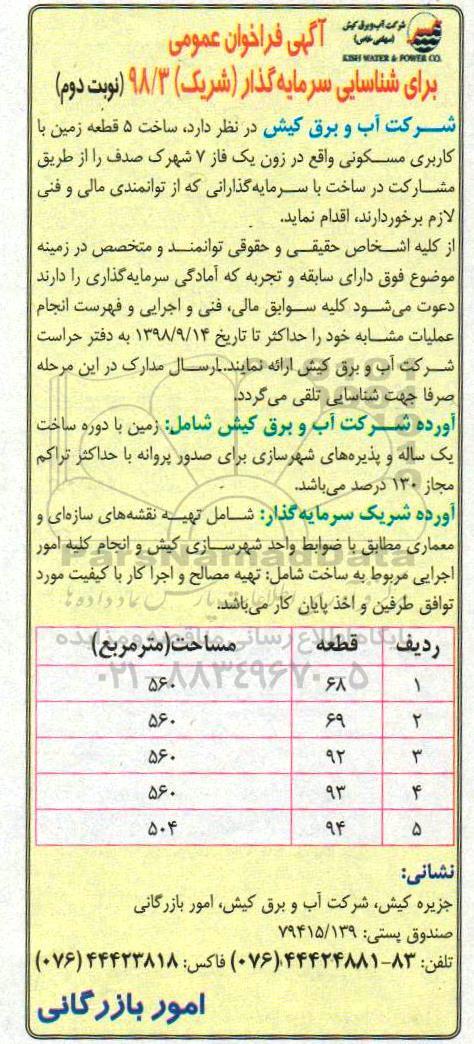 شرکت آب و برق کیش
(سهامی خاص)
KISH WATER & POWER CO.
آگهی فراخوان عمومی
برای شناسایی سرمایه‌گذار (شریک) ۹۸/۳ (نوبت دوم)
شرکت آب و برق کیش در نظر دارد، ساخت ۵ قطعه زمین با
کاربری مسکونی واقع در زون یک فاز ۷ شهرک صدف را از طریق
مشارکت در ساخت با سرمایه‌گذارانی که از توانمندی مالی و فنی
لازم برخوردارند، اقدام نماید.
از کلیه اشخاص حقیقی و حقوقی توانمند و متخصص در زمینه
موضوع فوق دارای سابقه و تجربه که آمادگی سرمایه‌گذاری را دارند
دعوت می‌شود کلیه سوابق مالی، فنی و اجرایی و فهرست انجام
عملیات مشابه خود را حداکثر تا تاریخ ۱۳۹۸/۹/۱۴ به دفتر حراست
شرکت آب و برق کیش ارائه نمایند. ارسال مدارک در این مرحله
صرفا جهت شناسایی تلقی می‌گردد.
آورده شرکت آب و برق کیش شامل: زمین با دوره ساخت
یک ساله و پذیره‌های شهرسازی برای صدور پروانه با حداکثر تراکم
مجاز ۱۳۰ درصد می‌باشد.
آورده شریک سرمایه‌گذار: شامل تهیه نقشه‌های سازه‌ای و
معماری مطابق با ضوابط واحد شهرسازی کیش و انجام کلیه امور
اجرایی مربوط به ساخت شامل: تهیه مصالح و اجرا کار با کیفیت مورد
توافق طرفین و اخذ پایان کار می‌باشد.
ParsNamadData
پایگاه اطلاع رسانی مناقصه و مزایده
۰۲۱-۸۸۳۴۹۶۷۰-۵
ردیف قطعه مساحت(مترمربع)
۱ ۶۸ ۵۶۰
۲ ۶۹ ۵۶۰
۳ ۹۲ ۵۶۰
۴ ۹۳ ۵۶۰
۵ ۹۴ ۵۰۴
نشانی:
جزیره کیش، شرکت آب و برق کیش، امور بازرگانی
صندوق پستی: ۷۹۴۱۵/۱۳۹
تلفن: ۸۳-۴۴۴۲۴۸۸۱ (۰۷۶) فاکس: ۴۴۴۲۳۸۱۸ (۰۷۶)
امور بازرگانی